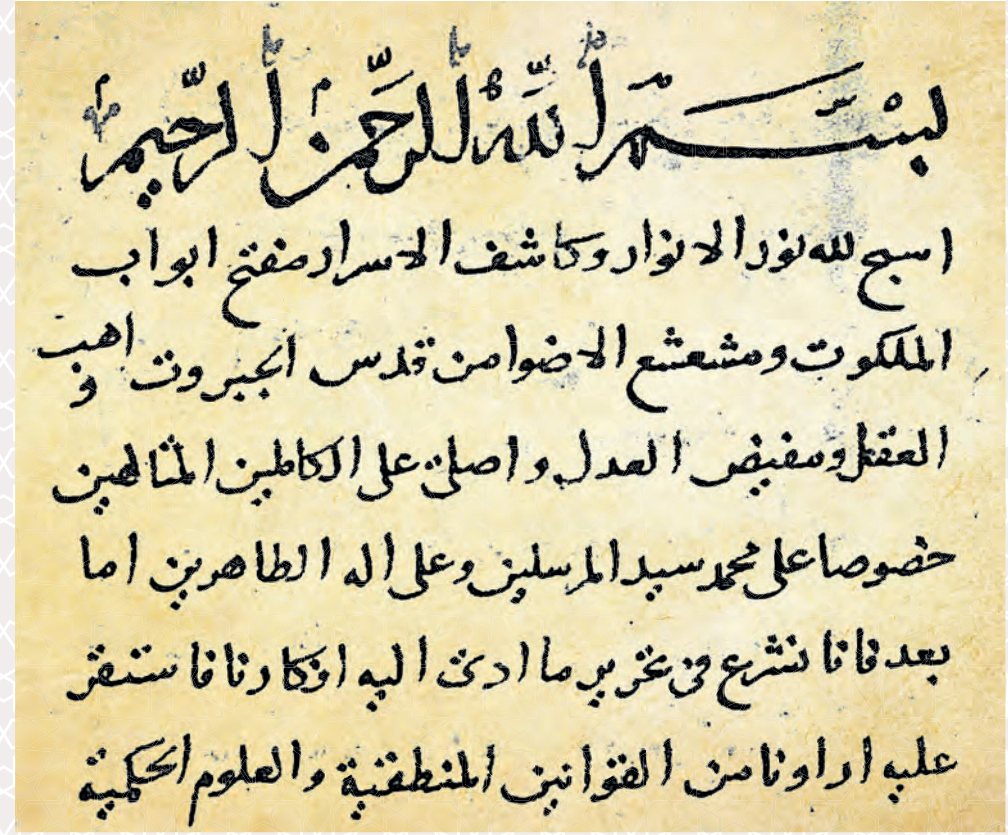 بسم الله الرحمن الرحيم
اسبح لله نور الانوار وكاشف الاسرار مفتح ابواب
الملكوت ومشعشع الاضوا من قدس الجبروت واهب
العقل ومفيض العدل واصلى على الكاملين المتالهين
خصوصا على محمد سيد المرسلين وعلى اله الطاهرين اما
بعد فانا نشرع فى تحرير ما ادى اليه افكارنا فاستقر
عليه اراونا من القوانين المنطقية والعلوم الحكمية